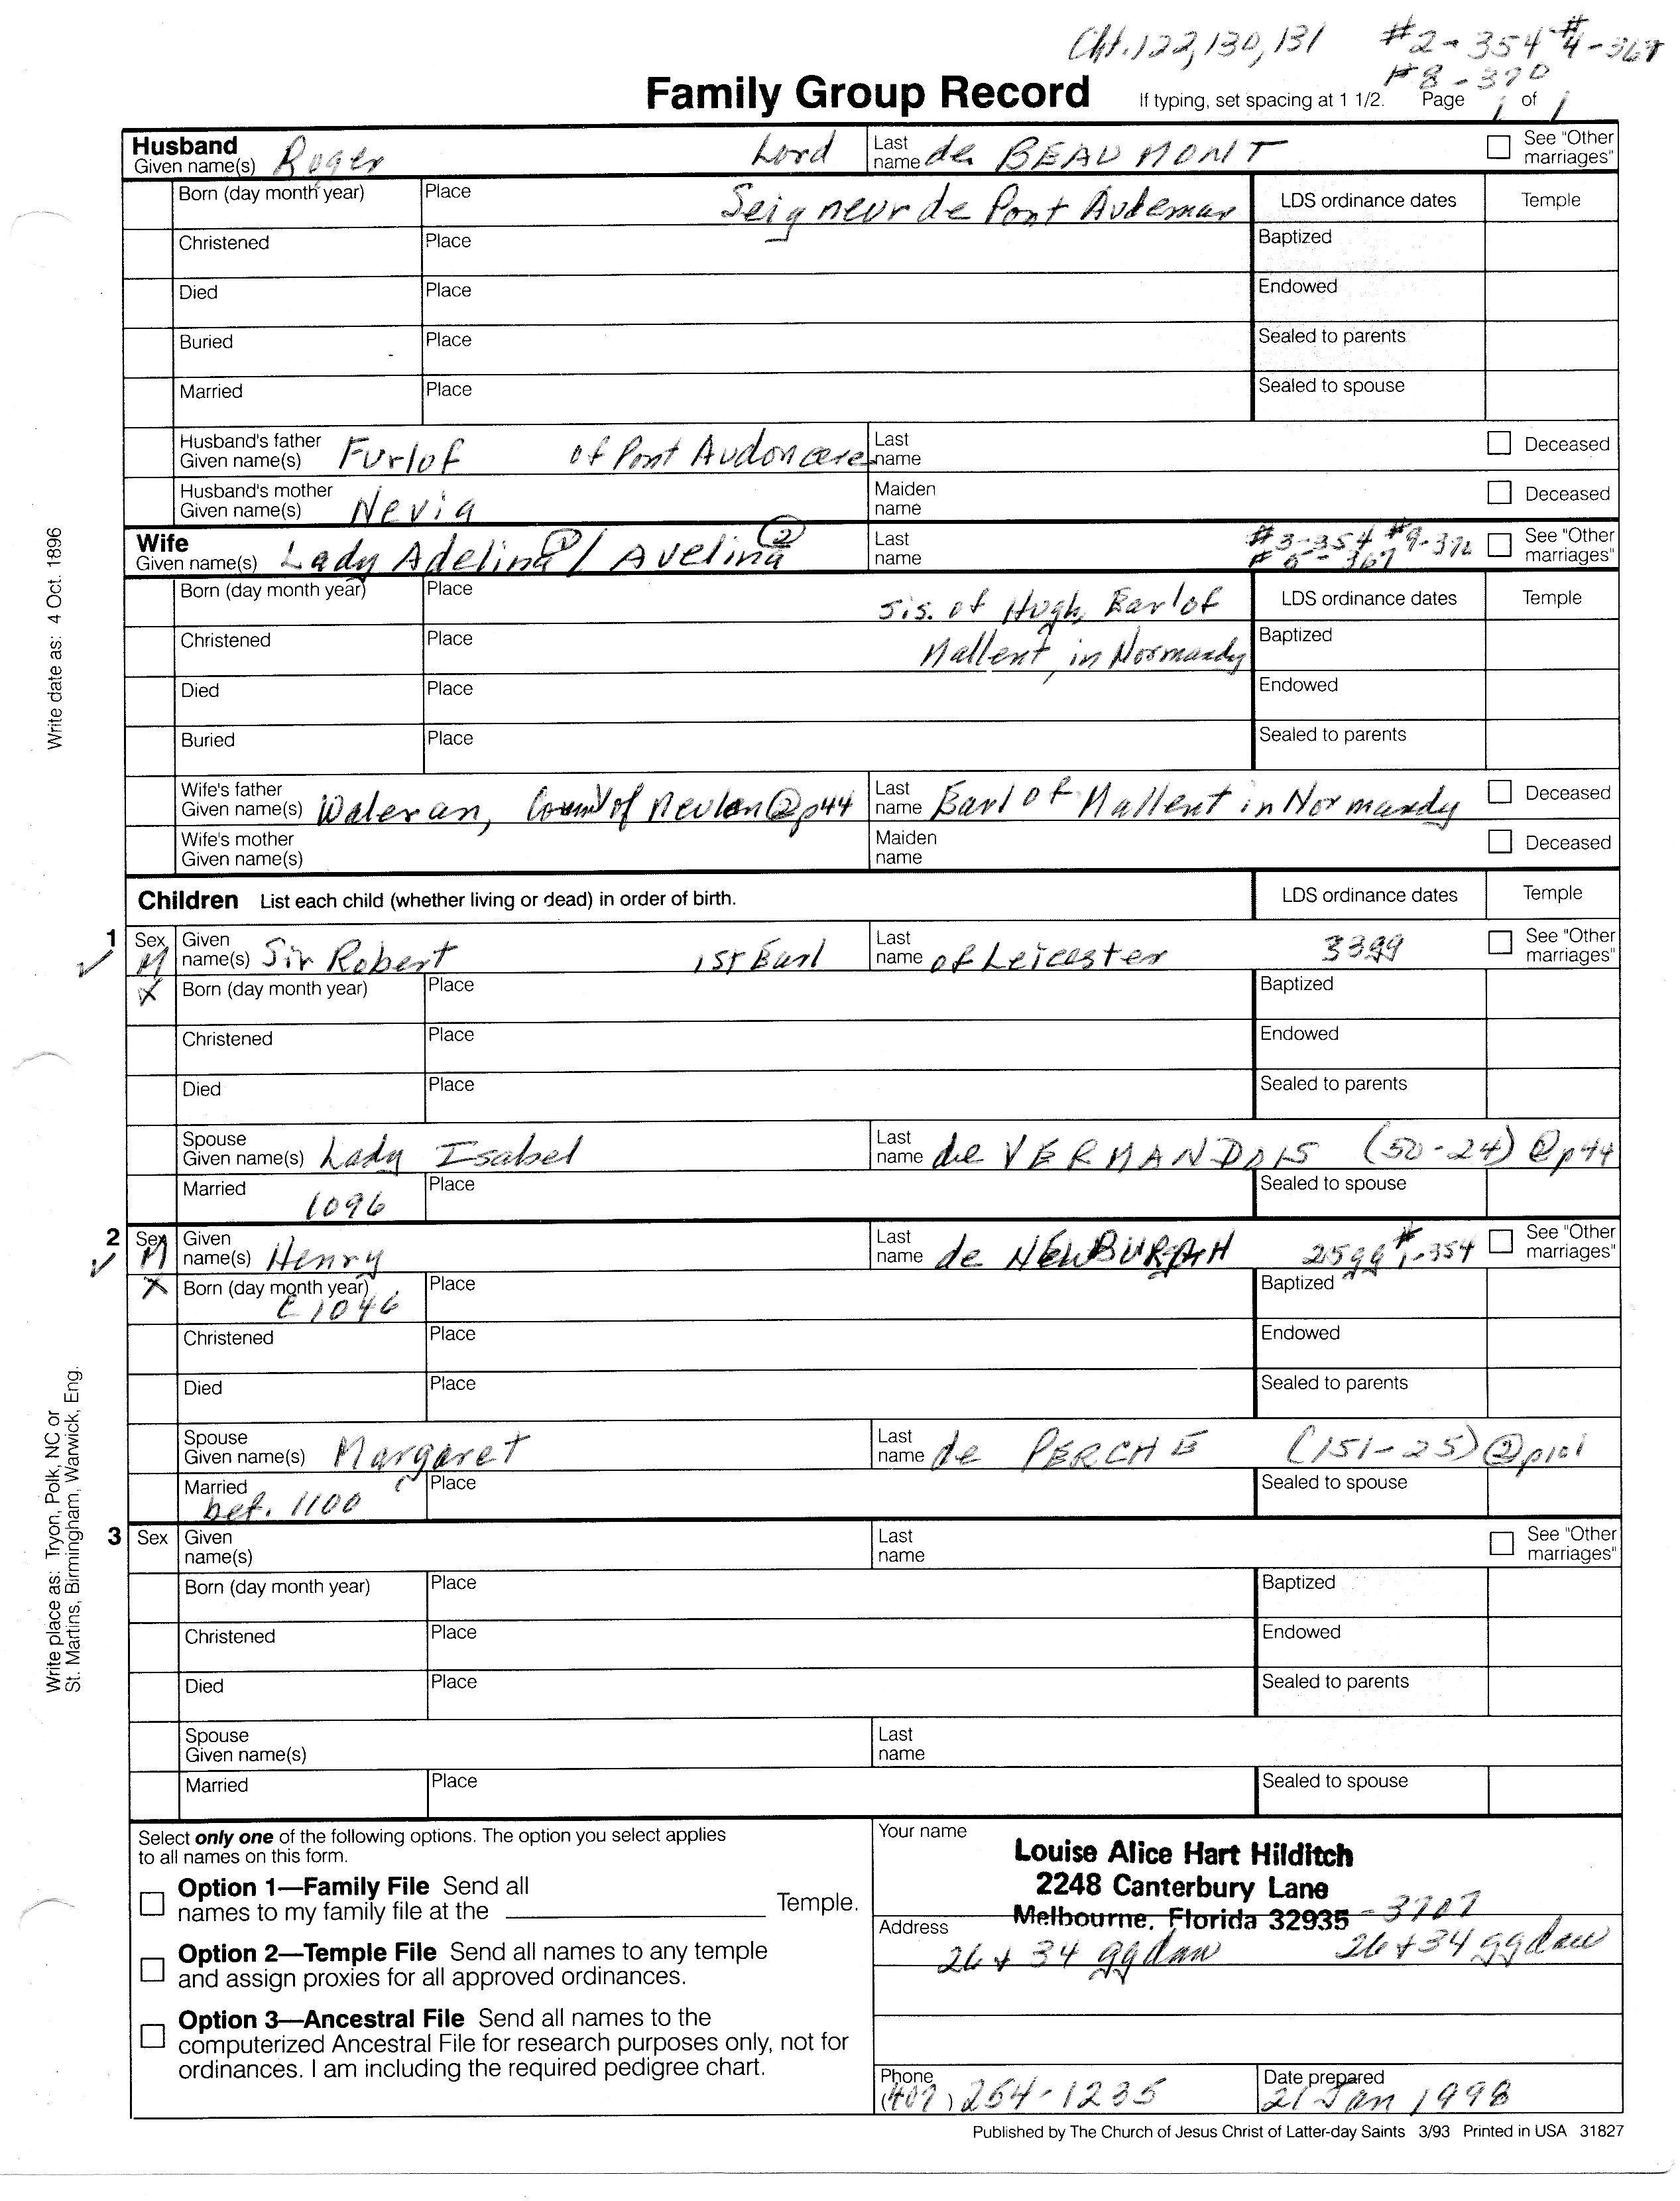 Cht. 122, 130, 131 #2-354 #4-367
#8-370
Family Group Record If typing, set spacing at 1 1/2. Page 1 of 1
Husband
Given name(s) Roger Lord Last name de BEAUMONT See "Other marriages"
Born (day month year) Place Seigneur de Pont Audemar LDS ordinance dates Temple
Christened Place Baptized
Died Place Endowed
Buried Place Sealed to parents
Married Place Sealed to spouse
Husband's father
Given name(s) Furlof of Pont Audoncere Last name Deceased
Husband's mother
Given name(s) Nevia Maiden name Deceased
Wife
Given name(s) Lady Adelina (1) / Avelina (2) Last name #3-354 #9-370 See "Other marriages"
Born (day month year) Place sis. of Hugh, Earl of LDS ordinance dates Temple
Christened Place Mallent, in Normandy Baptized
Died Place Endowed
Buried Place Sealed to parents
Wife's father
Given name(s) Waleran, Count of Meulan (2) p44 Last name Earl of Mallent in Normandy Deceased
Wife's mother
Given name(s) Maiden name Deceased
Children List each child (whether living or dead) in order of birth. LDS ordinance dates Temple
1 Sex M Given name(s) Sir Robert 1st Earl Last name of Leicester 33gg See "Other marriages"
X Born (day month year) Place Baptized
Christened Place Endowed
Died Place Sealed to parents
Spouse
Given name(s) Lady Isabel Last name de VERMANDOIS (50-24) @p44
Married 1096 Place Sealed to spouse
2 Sex M Given name(s) Henry Last name de NEWBURGH 25gg #1-354 See "Other marriages"
X Born (day month year) C 1046 Place Baptized
Christened Place Endowed
Died Place Sealed to parents
Spouse
Given name(s) Margaret Last name de PERCHE (151-25) (2) p101
Married bef. 1100 Place Sealed to spouse
3 Sex Given name(s) Last name See "Other marriages"
Born (day month year) Place Baptized
Christened Place Endowed
Died Place Sealed to parents
Spouse
Given name(s) Last name
Married Place Sealed to spouse
Write date as: 4 Oct. 1896
Write place as: Tryon, Polk, NC or
St. Martins, Birmingham, Warwick, Eng.
Select only one of the following options. The option you select applies
to all names on this form.
Option 1—Family File Send all
names to my family file at the Temple.
Option 2—Temple File Send all names to any temple
and assign proxies for all approved ordinances.
Option 3—Ancestral File Send all names to the
computerized Ancestral File for research purposes only, not for
ordinances. I am including the required pedigree chart.
Your name
Louise Alice Hart Hilditch
2248 Canterbury Lane
Melbourne, Florida 32935 -3707
Address
26 + 34 ggdau 26 + 34 ggdau
Phone (407) 254-1235
Date prepared 21 Jan 1998
Published by The Church of Jesus Christ of Latter-day Saints 3/93 Printed in USA 31827